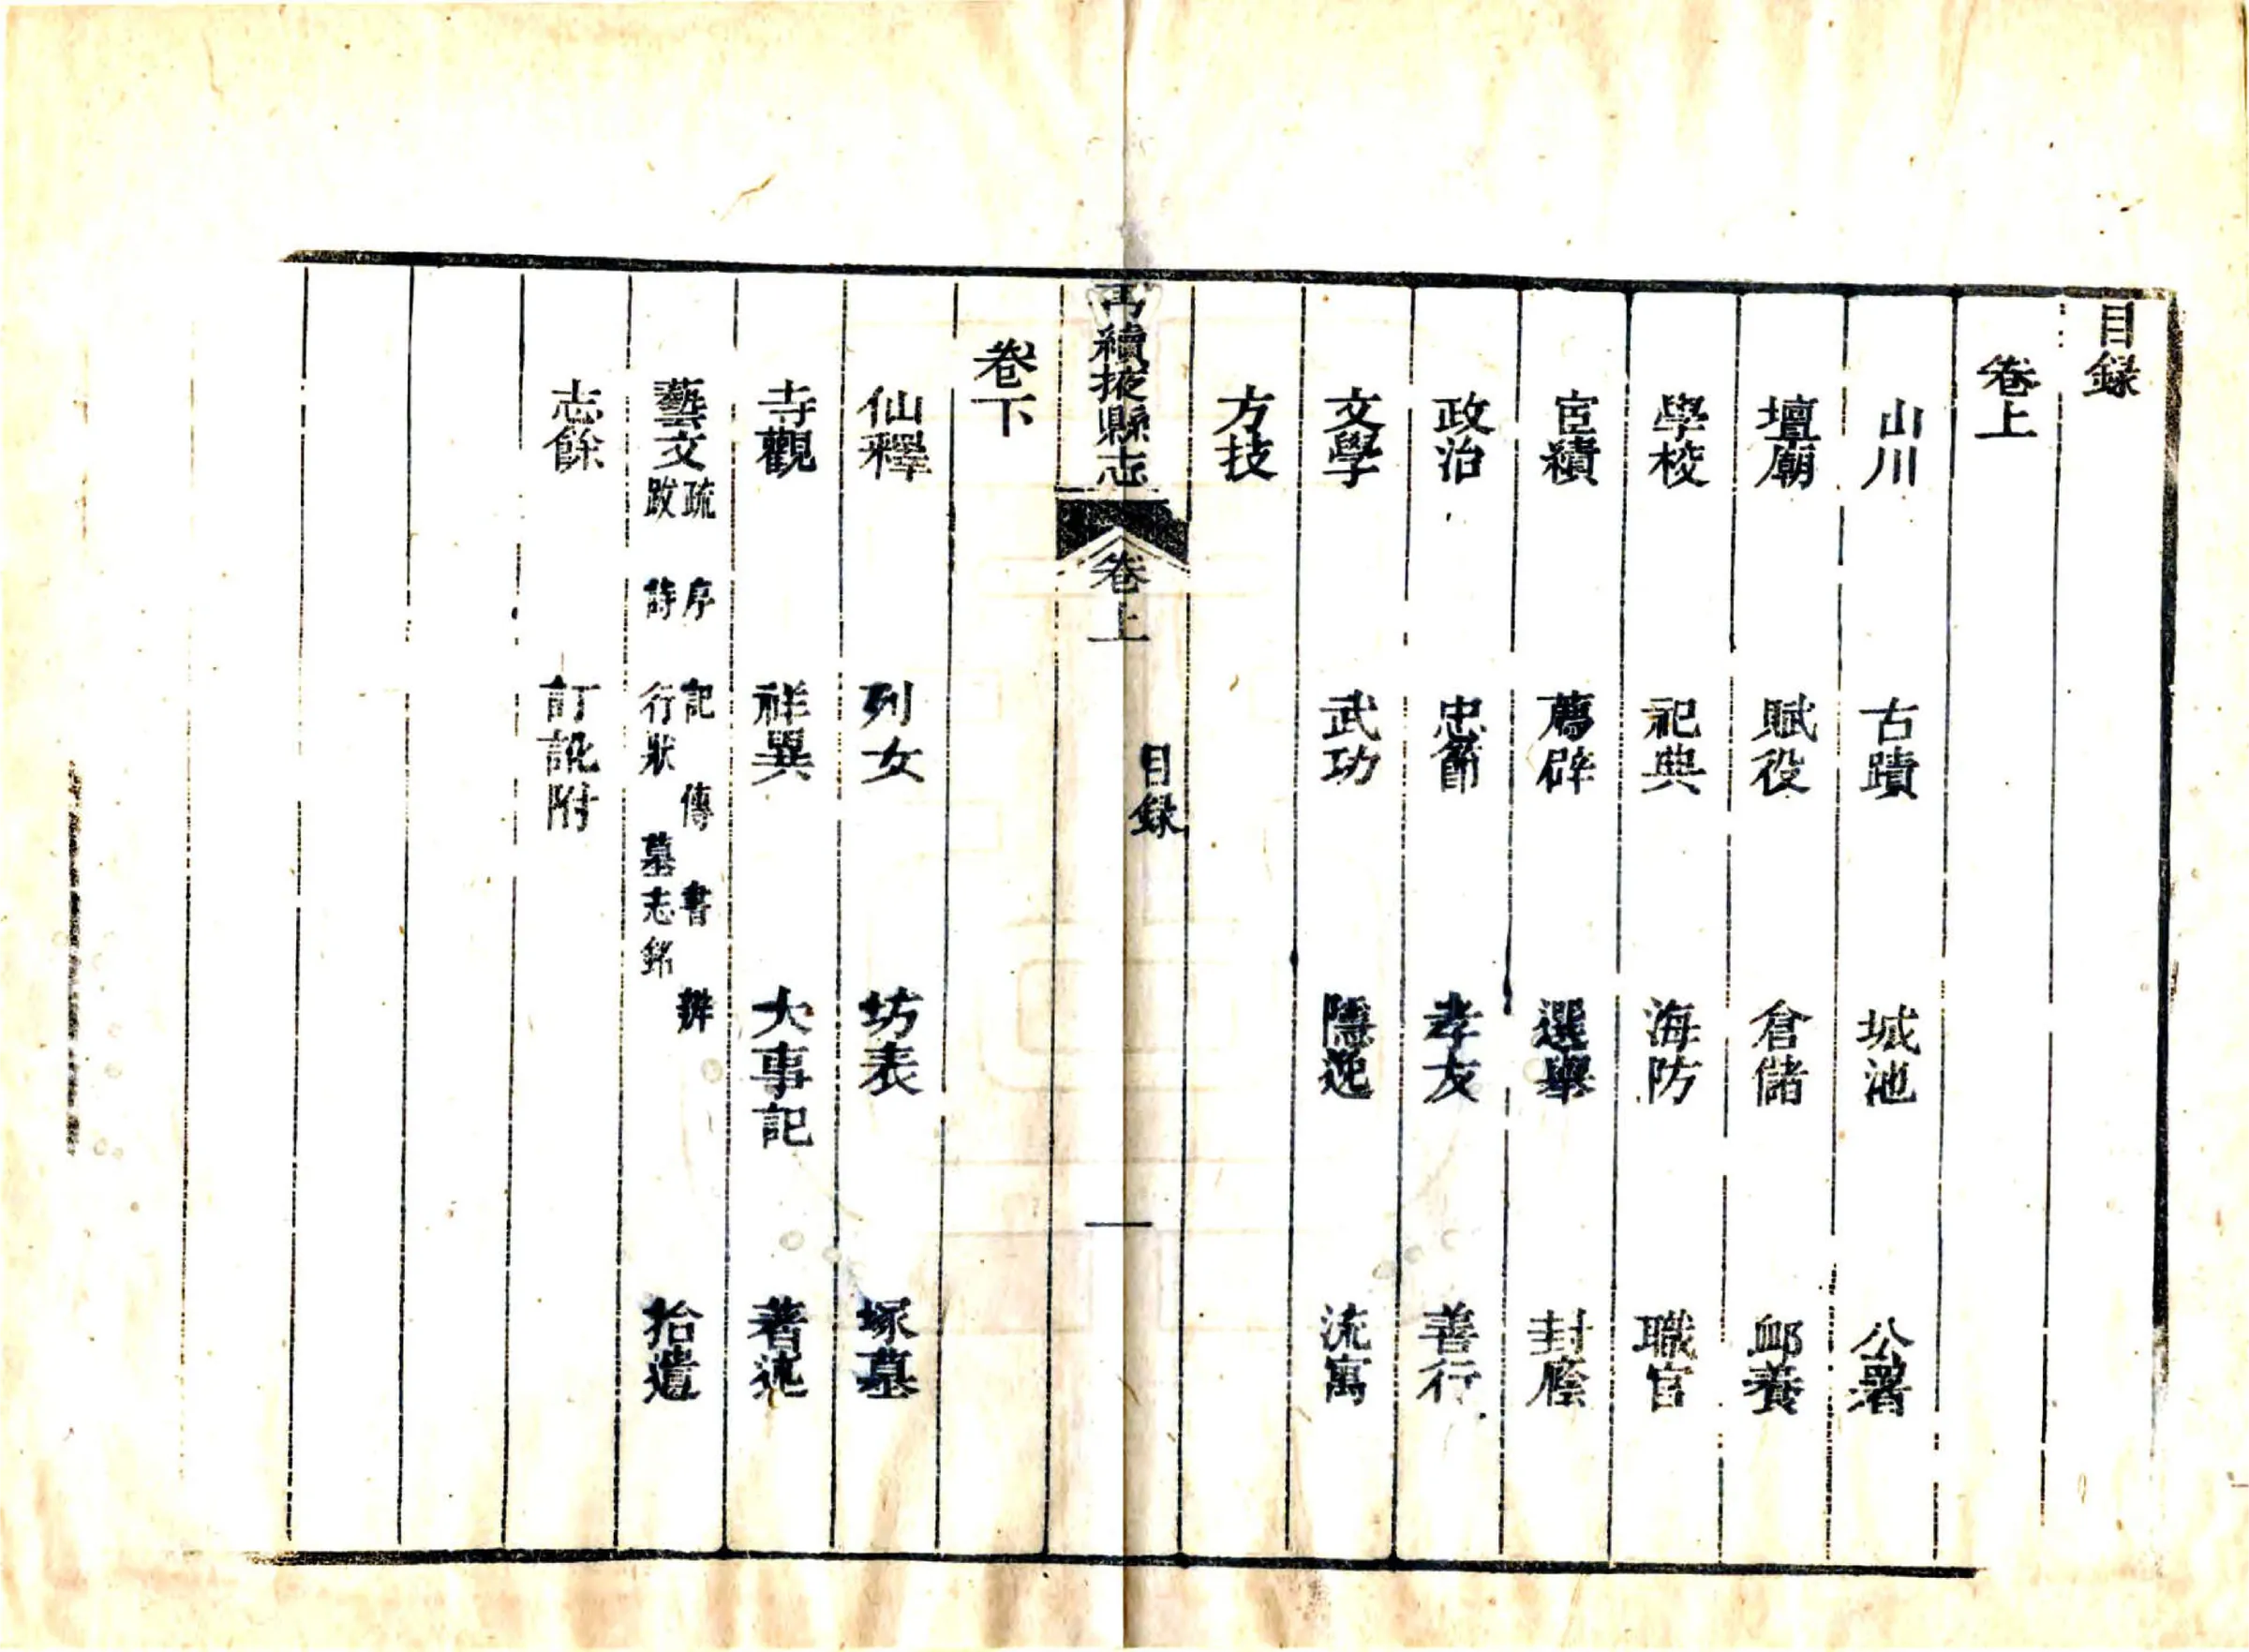 目録
卷上
山川 古蹟 城池 公署
壇廟 賦役 倉儲 卹養
學校 祀典 海防 職官
宦績 薦辟 選舉 封廕
政治 忠節 孝友 善行
文學 武功 隱逸 流寓
方技
再續掖縣志 卷上 目録 一
卷下
仙釋 列女 坊表 塚墓
寺觀 祥異 大事記 著述
藝文 疏 序 記 傳 書 辨
跋 詩 行狀 墓志銘 拾遺
志餘 訂訛附